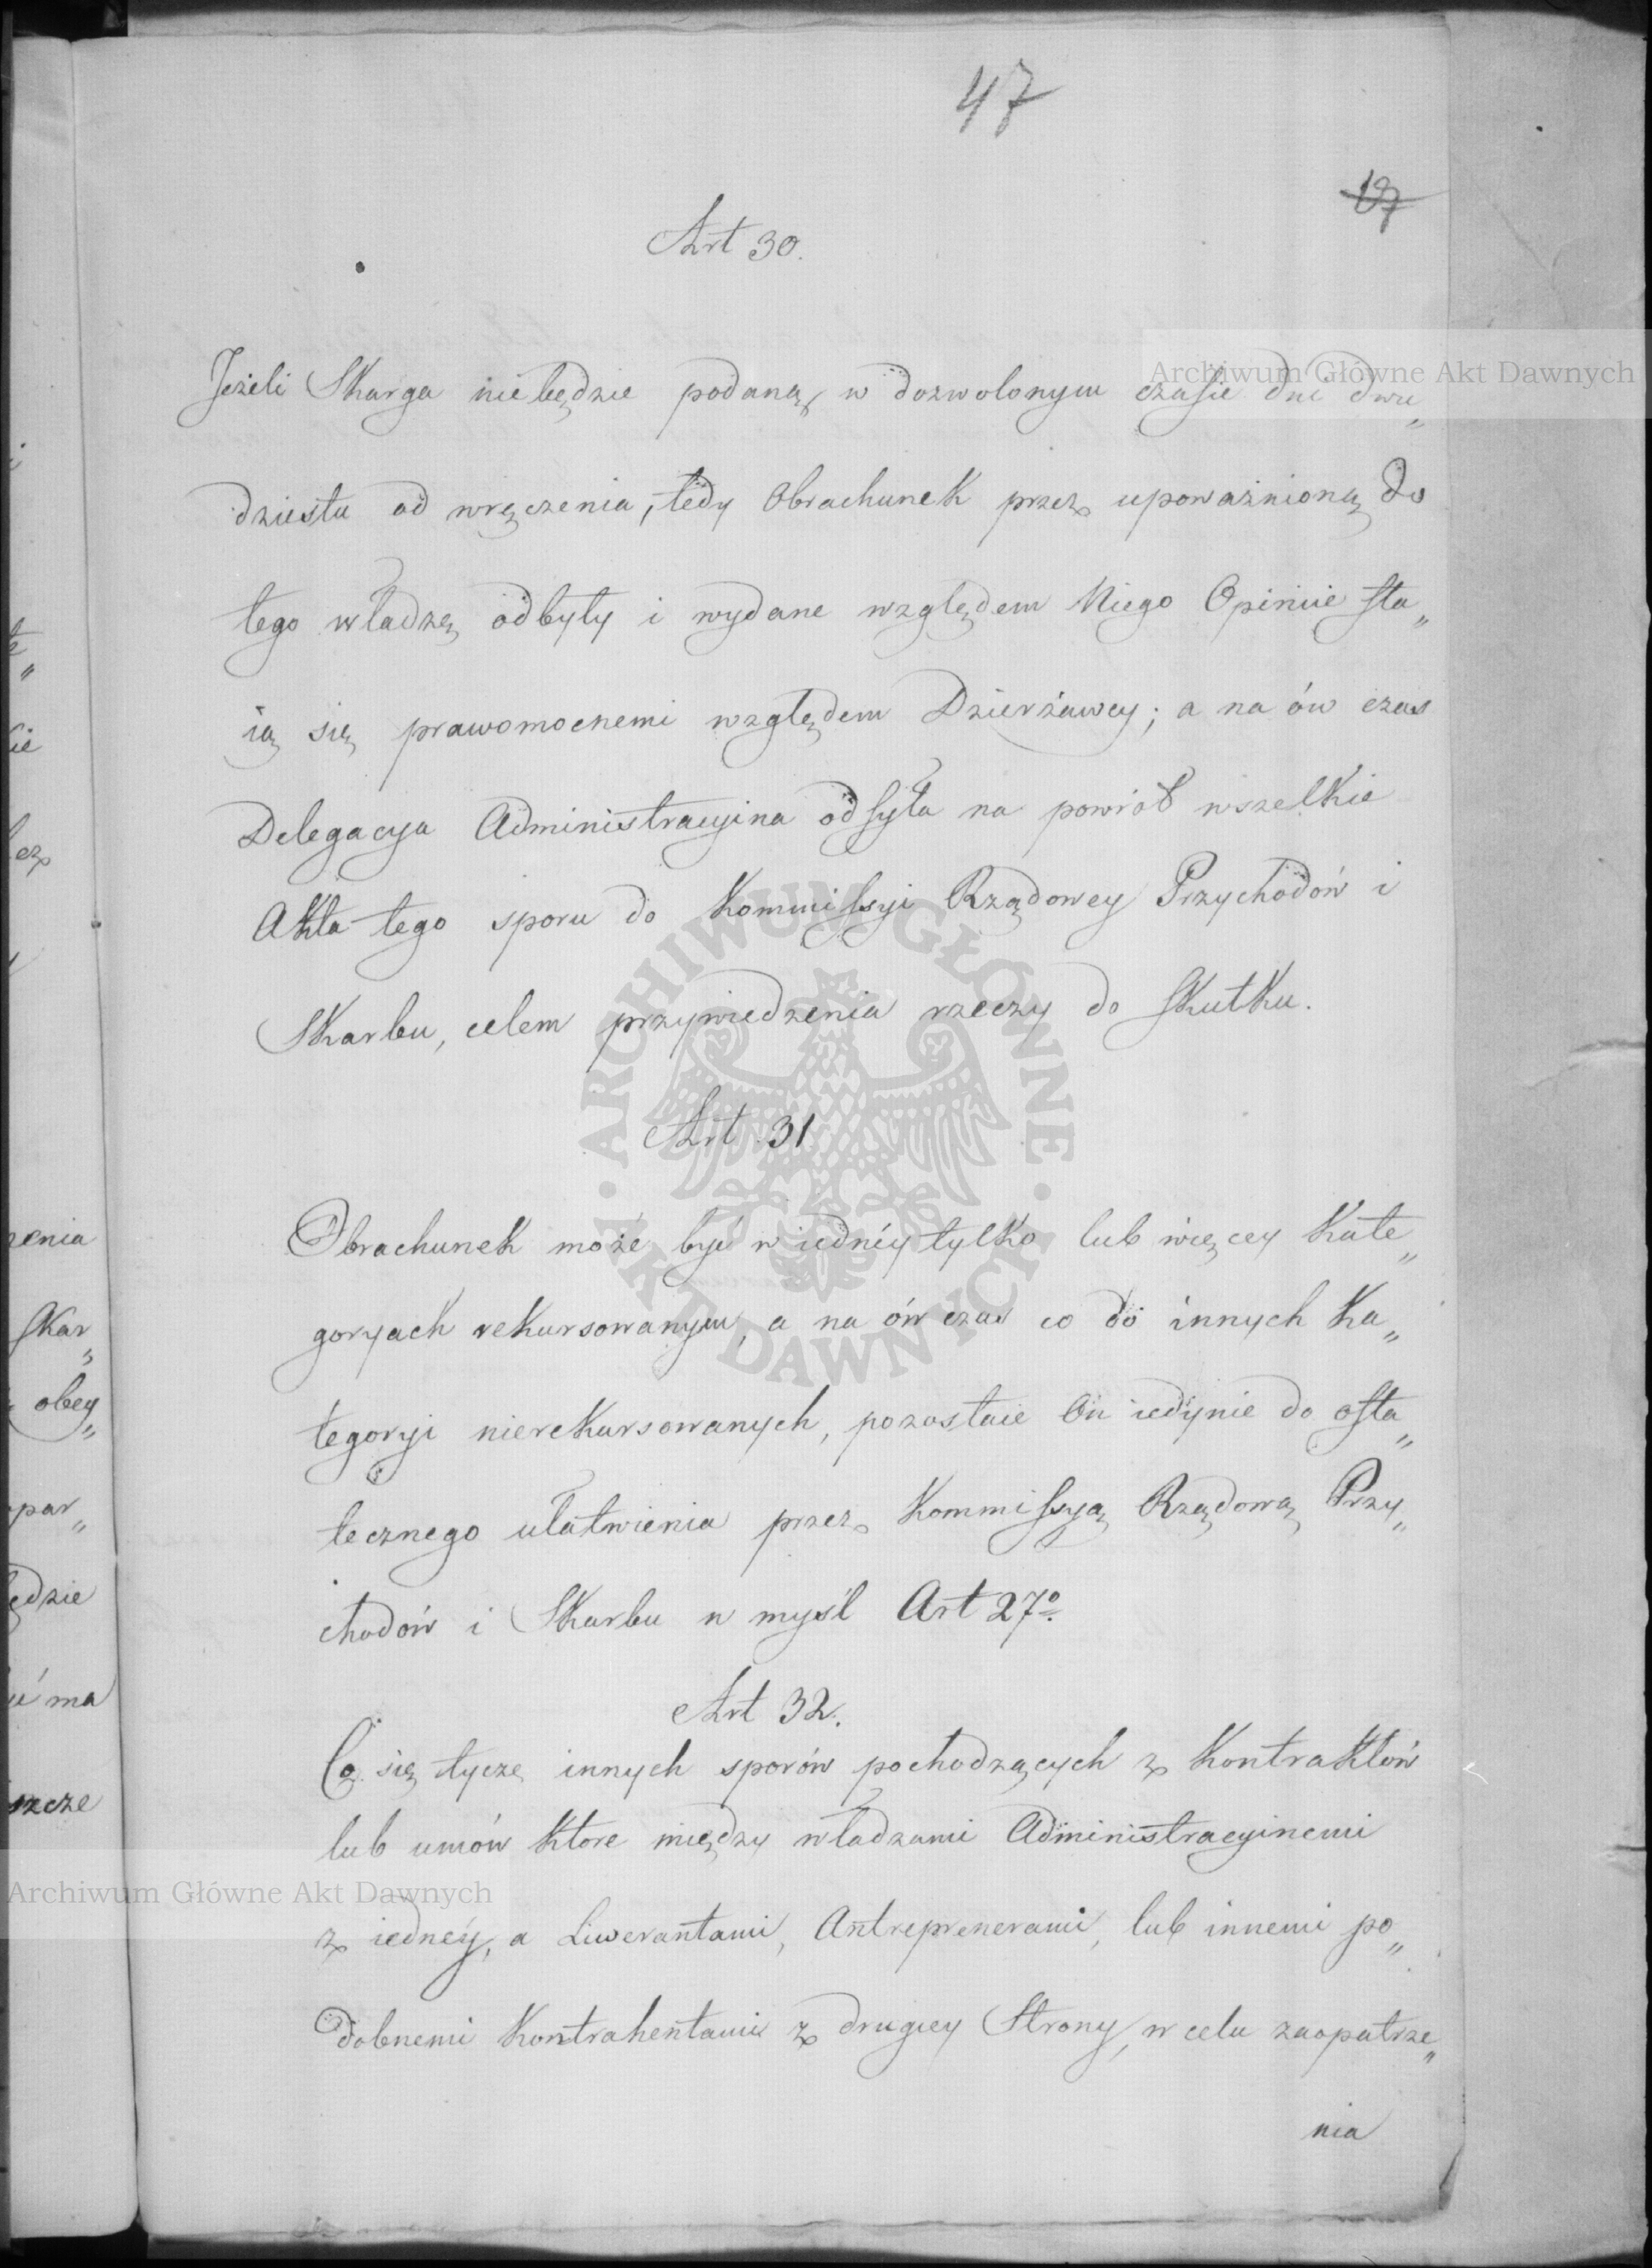 47
Art 30.
Jeżeli Skarga niebędzie podaną, w dozwolonym czasie dni dwu„
dziestu od wręczenia, tedy Obrachunek przez upoważnioną do
tego władzę odbyty i wydane względem Niego Opiniie sta„
ią się prawomocnemi względem Dzierżawcy; a na ów czas
Delegacya Administracyina odsyła na powrót wszelkie
Akta tego sporu do Kommissyi Rządowey Przychodów i
Skarbu, celem przywiedzenia rzeczy do skutku.
Art 31
Obrachunek może być w iednéy tylko lub więcey Kate„
goryach rekursowanym, a na ów czas co do innych Ka„
tegoryi nierekursowanych, pozostaie On iedynie do osta„
tecznego ułatwienia przez Kommissyą Rządową Przy„
chodów i Skarbu w myśl Art 27º
Art 32.
Co się tycze innych sporów pochodzących z Kontraktów
lub umów Ktore między władzami Administracyinemi
z iednéy, a Liwerantami, Antreprenerami, lub innemi po„
dobnemi Kontrahentami z drugiey Strony, w celu zaopatrze„
nia
ie
lez
zenia
skar„
obey„
par„
będzie
ma
szcze
Archiwum Główne Akt Dawnych
Archiwum Główne Akt Dawnych
ARCHIWUM GŁÓWNE AKT DAWNYCH